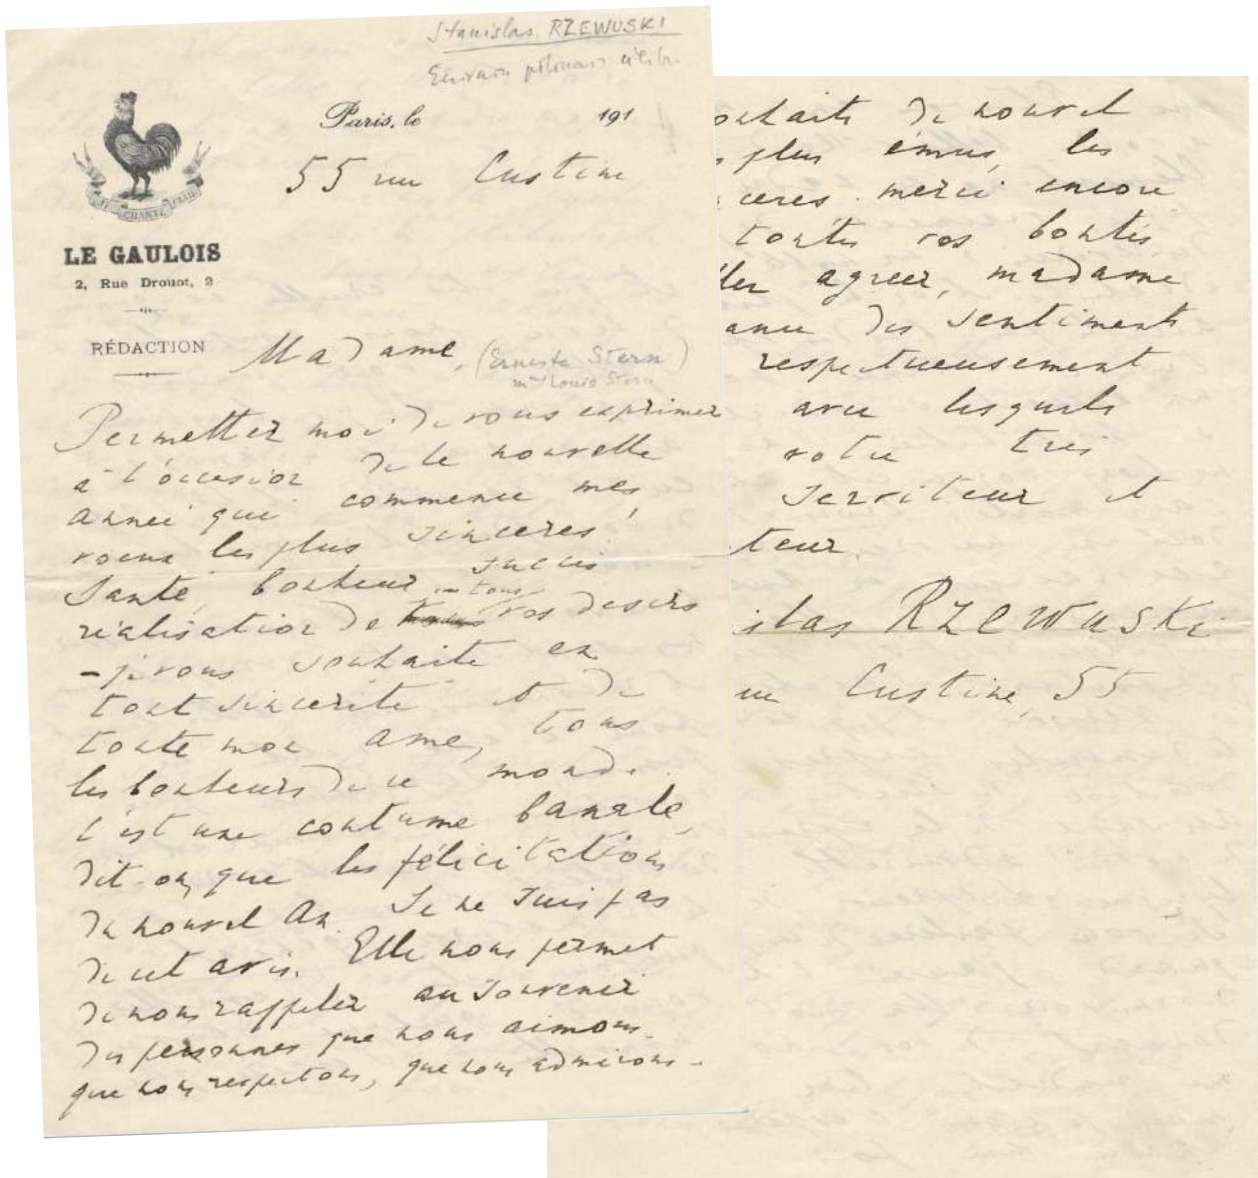 Stanislas RZEWUSKI
Ecrivain polonais
Paris, le 191
55 rue Custine
JE CHANTE CLAIR
LE GAULOIS
2, Rue Drouot, 2
RÉDACTION
Madame, (Ernesta Stern)
Mme Louis Stern
Permettez moi de vous exprimer
a l'occasion de la nouvelle
année qui commence mes
voeux les plus sinceres!
Santé, bonheur, succès
tous
réalisation de vos desirs
- je vous souhaite en
tout sincerité et de
toute mon ame, tous
les bonheurs de ce monde.
C'est une coutume banale,
dit-on, que les félicitations
du nouvel An. Je ne suis pas
de cet avis. Elle nous permet
de nous rappeler au souvenir
des personnes que nous aimons
que nous respectons, que nous admirons -
ouhaits de nouvel
plus émus, les
ceres. merci encore
toutes vos bontés
ller agreer, madame
ance des sentiments
respectueusement
avec lesquels
votre tres
serviteur et
teur.
islas RZEWUSKI
rue Custine, 55